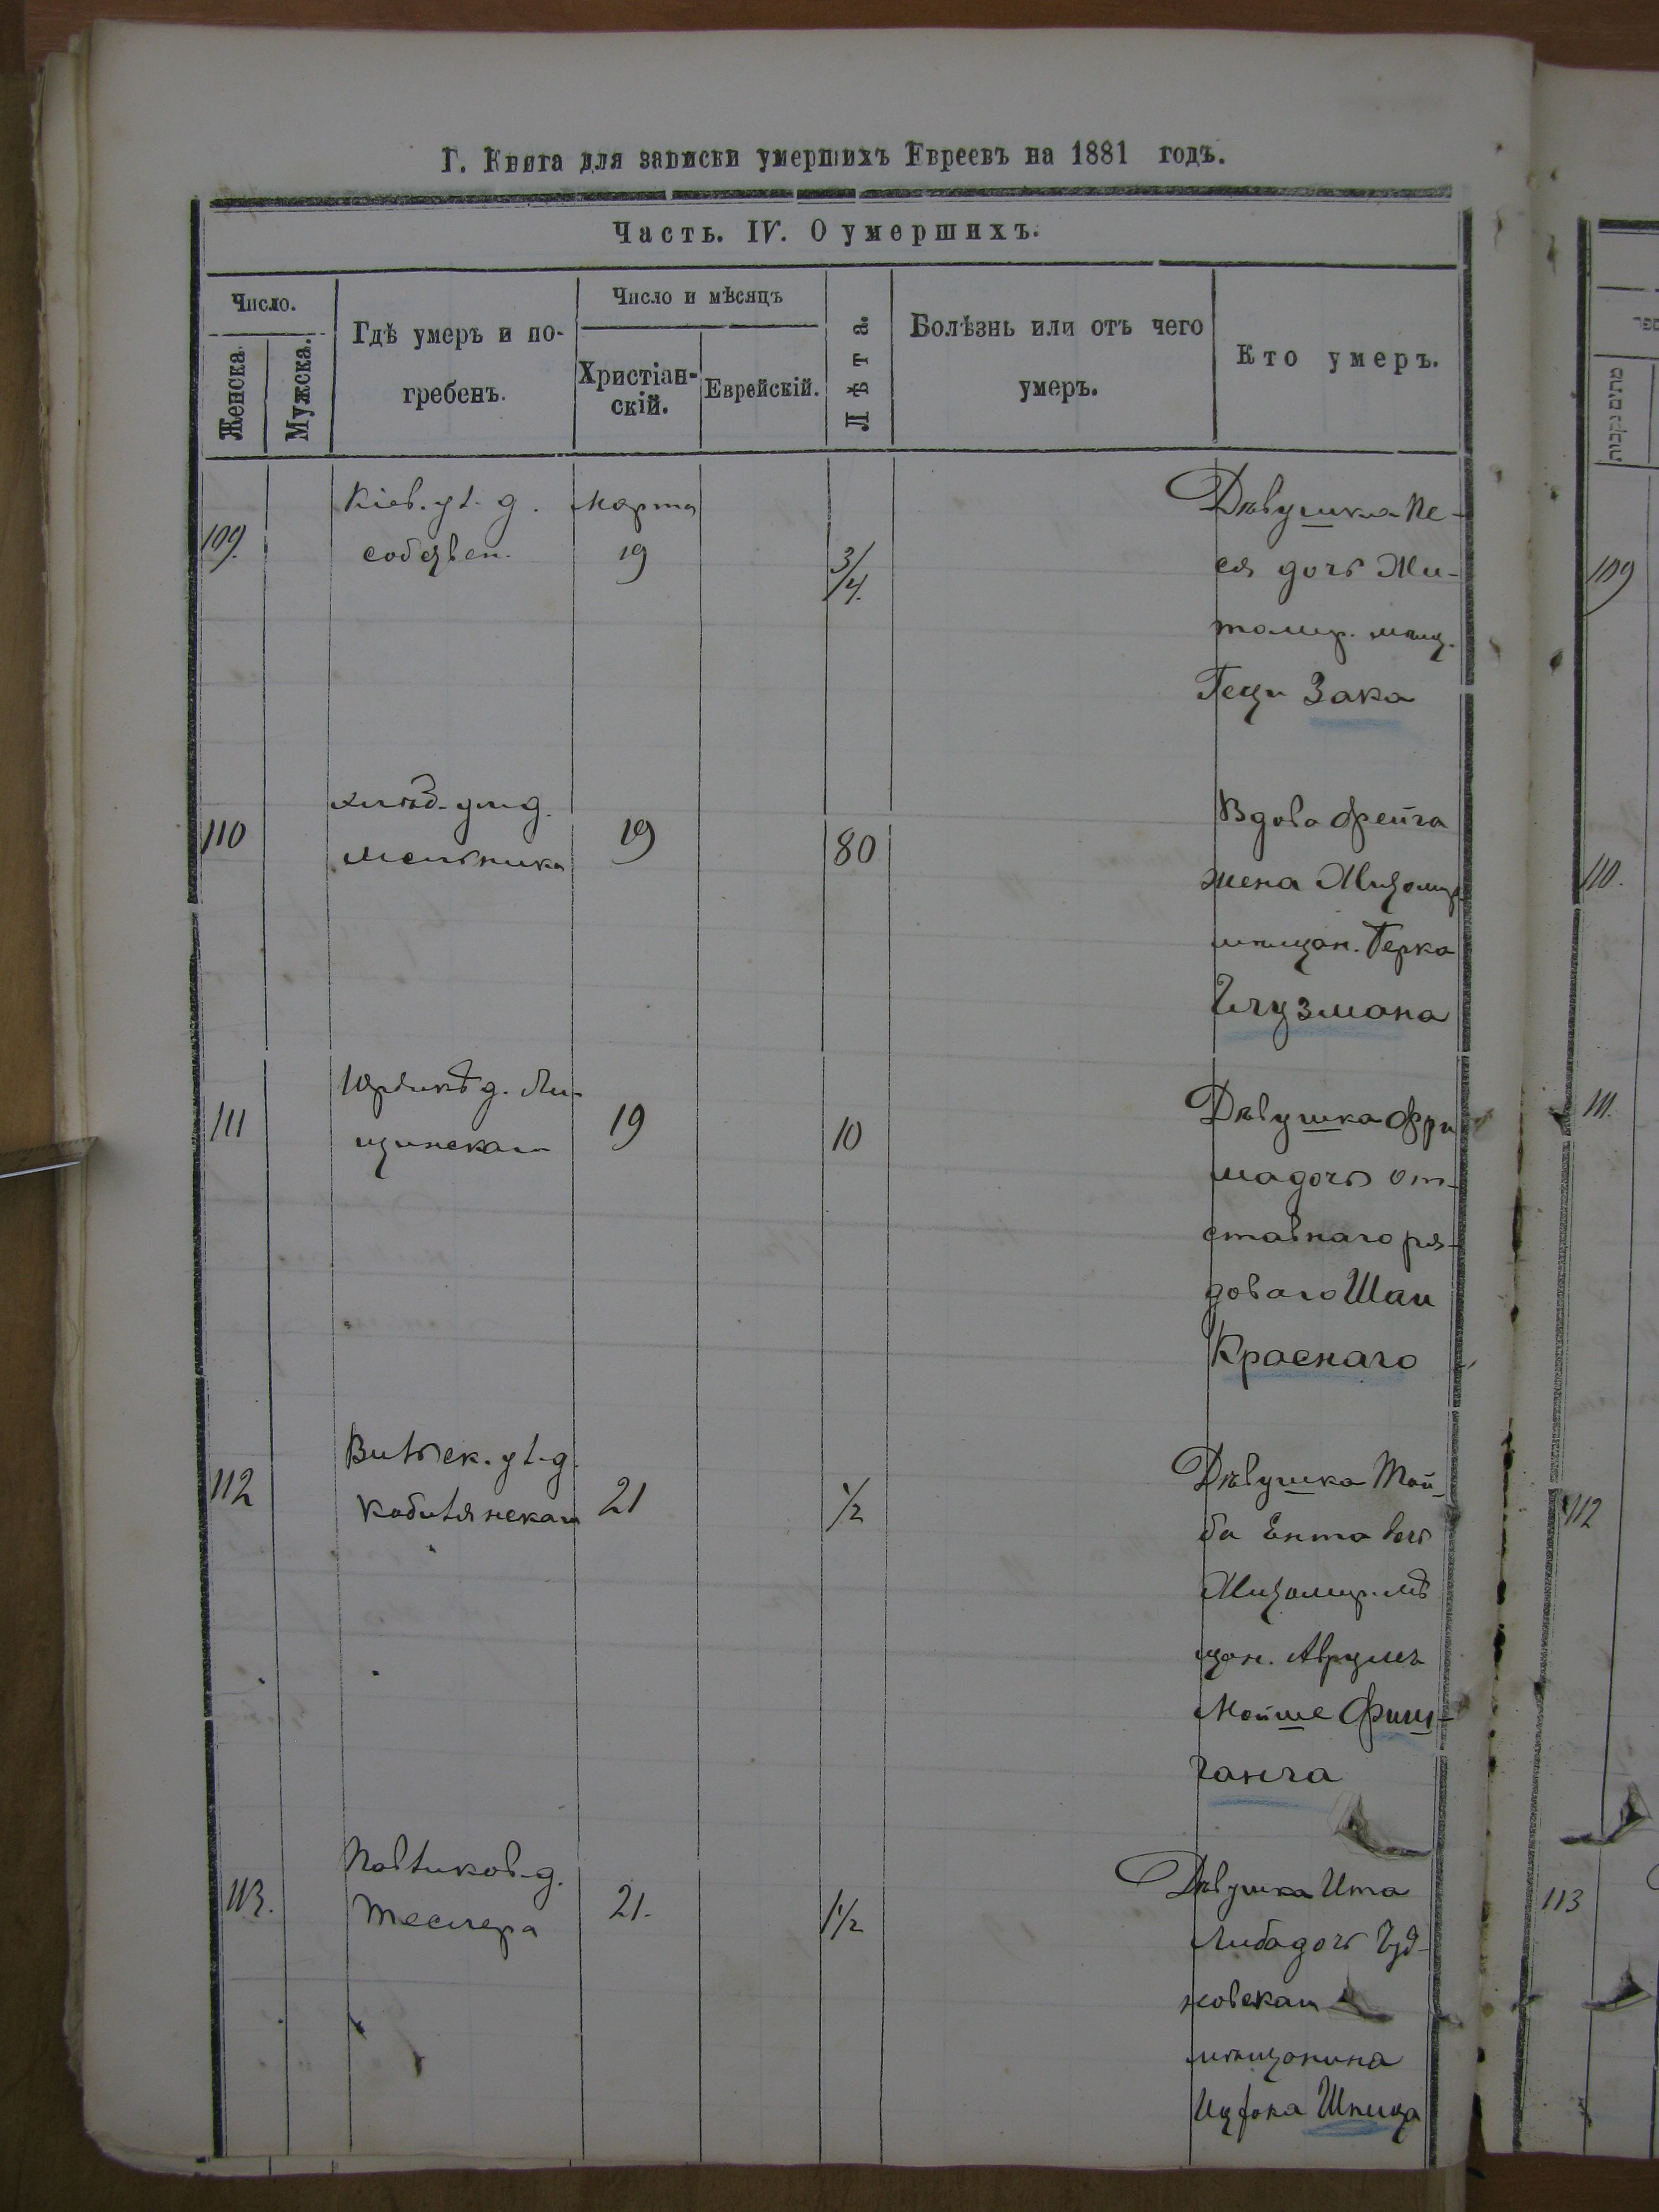 Г. Книга для записки умершихъ Евреевъ на 1881 годъ.
Часть. IV. О умершихъ.
Число.
Женска.
Мужска.
Гдѣ умеръ и по-
гребенъ.
Число и мѣсяцъ
Христіан-
скій.
Еврейскій.
Лѣта.
Болѣзнь или отъ чего
умеръ.
Кто умеръ.
109.
Кіев. ул. д.
собствен.
Марта
19
3/4.
Дѣвушка Пе-
ся дочь Жи-
томир. мѣщ.
Зака
110
мельника
19
80
Вдова Фейга
жена Житомир
мѣщан. Берка
Глузмана
111
19
10
Дѣвушка Фри
ма дочь от-
ставнаго ря-
доваго Шаи
Краснаго
112
Вильск. ул. д.
Кобилянскаго
21
1/2
Дѣвушка Той-
ба Ента дочь
Житомир. мѣ
щан. Аврумъ
Мойше Фиш-
ганга
113.
Павликов. д.
Теслера
21.
1 1/2
Дѣвушка Ита
Либа дочь Чуд-
новскаго
мѣщанина
Ицхока Шпица
109
110.
111.
112
113
מתים נקבות